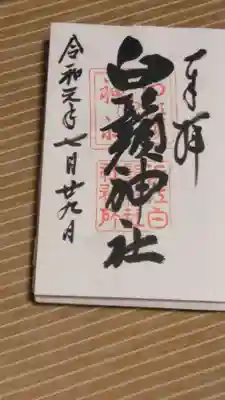 奉拝
白鬚神社
令和元年七月廿九日